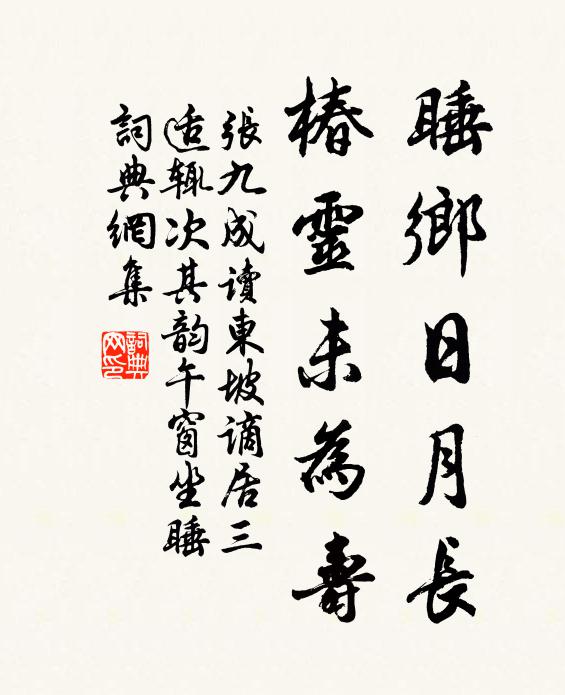 睡鄉日月長
椿靈未為壽
張九成讀東坡謫居三
适輒次其韵午窗坐睡
詞典網集
詞典网印